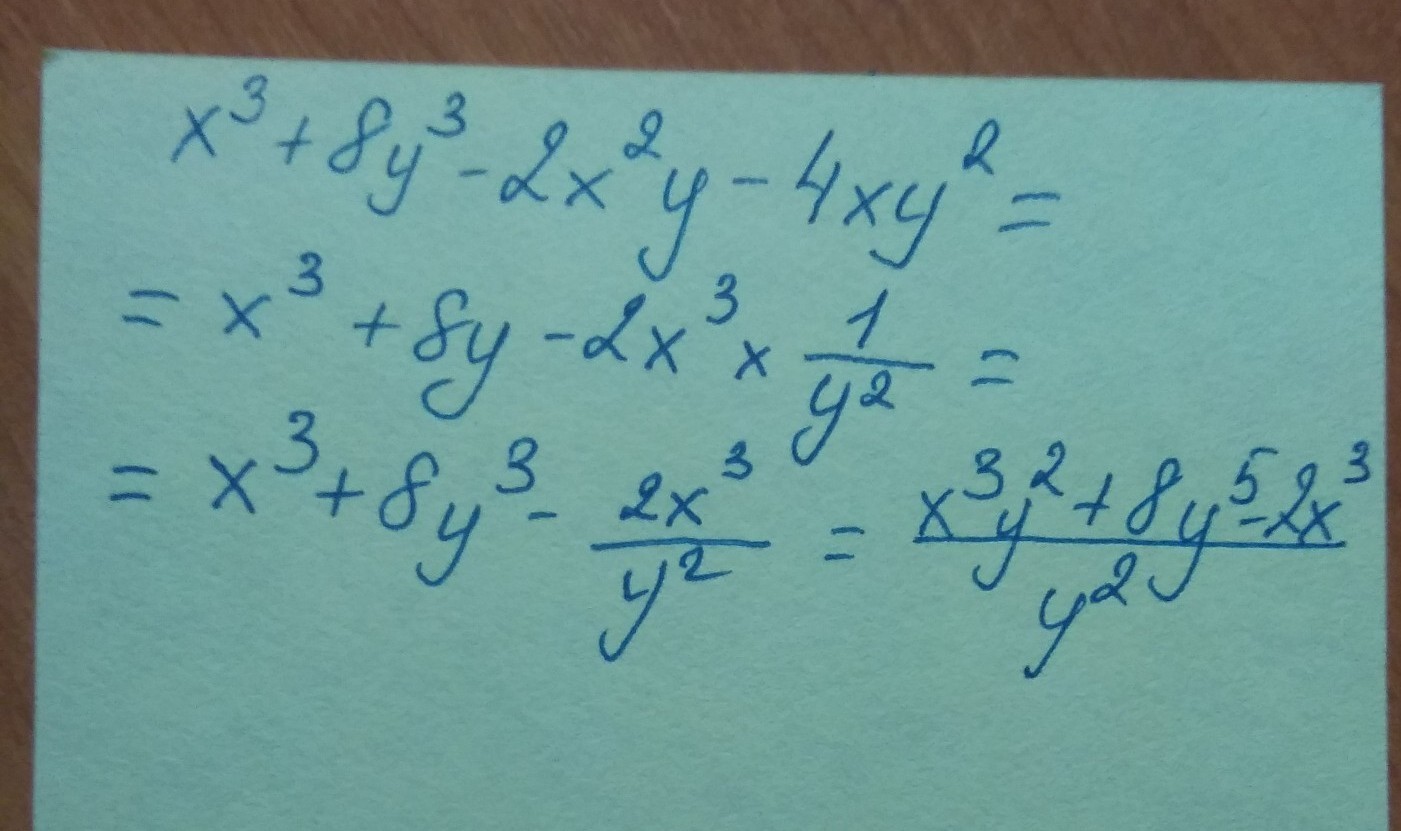 x³ + 8y³ - 2x²y - 4xy² =
= x³ + 8y - 2x³ × 1/y² =
= x³ + 8y³ - 2x³/y² = (x³y² + 8y⁵ - 2x³)/y²